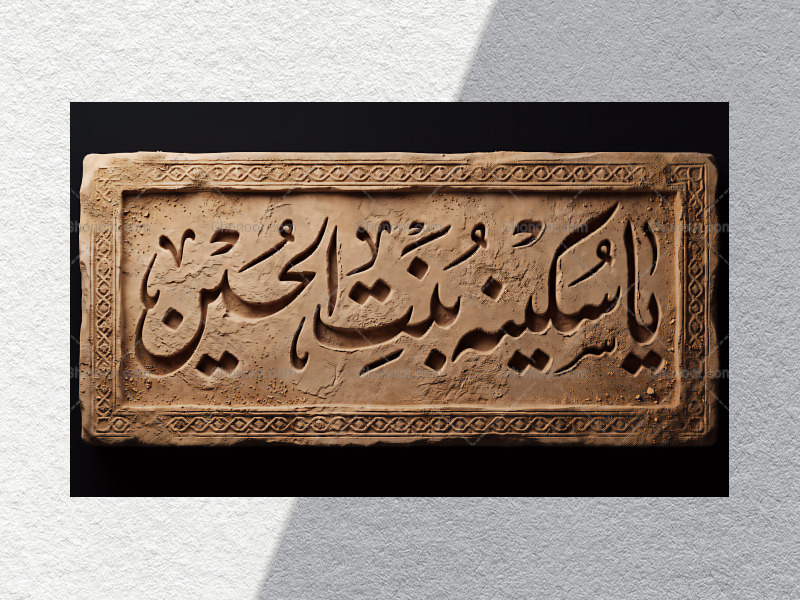 یا سُکینه بُنتِ الحُسین